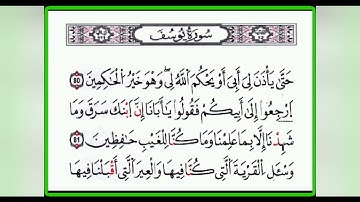 سُورَةُ يُوسُفَ
حَتَّىٰ يَأْذَنَ لِي أَبِي أَوْ يَحْكُمَ اللَّهُ لِي وَهُوَ خَيْرُ الْحَاكِمِينَ 80
ارْجِعُوا إِلَىٰ أَبِيكُمْ فَقُولُوا يَا أَبَانَا إِنَّ ابْنَكَ سَرَقَ وَمَا
شَهِدْنَا إِلَّا بِمَا عَلِمْنَا وَمَا كُنَّا لِلْغَيْبِ حَافِظِينَ 81
وَسْـَٔلِ الْقَرْيَةَ الَّتِي كُنَّا فِيهَا وَالْعِيرَ الَّتِي أَقْبَلْنَا فِيهَا